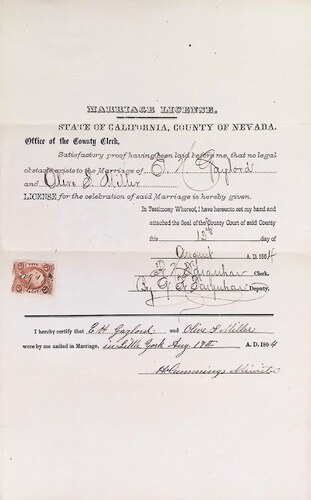 MARRIAGE LICENSE.
STATE OF CALIFORNIA, COUNTY OF NEVADA.
Office of the County Clerk,
Satisfactory proof having been laid before me, that no legal
obstacle exists to the Marriage of E. H. Gaylord
and Olive S. Miller
LICENSE for the celebration of said Marriage is hereby given.
In Testimony Whereof, I have hereunto set my hand and
attached the Seal of the County Court of said County
this 12th day of
August A.D. 1864
Farquhar Clerk.
By G. K. Farquhar Deputy.
I hereby certify that E. H. Gaylord and Olive S Miller
were by me united in Marriage, in Little York Aug 17th A. D. 1864
H Cummings Minister